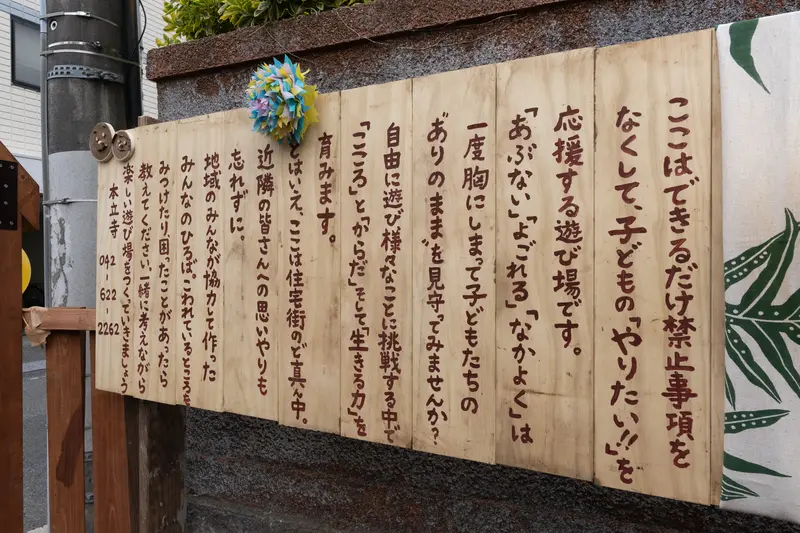 ここは、できるだけ禁止事項を
なくして、子どもの「やりたい!!」を
応援する遊び場です。
「あぶない」「よごれる」「なかよく」は
一度胸にしまって子どもたちの
“ありのまま”を見守ってみませんか?
自由に遊び様々なことに挑戦する中で
「こころ」と「からだ」、そして「生きる力」を
育みます。
とはいえ、ここは住宅街のど真ん中。
近隣の皆さんへの思いやりも
忘れずに。
地域のみんなが協力して作った
みんなのひろば。こわれているところを
みつけたり困ったことがあったら
教えてください。一緒に考えながら
楽しい遊び場をつくっていきましょう
本立寺 042-622-2262